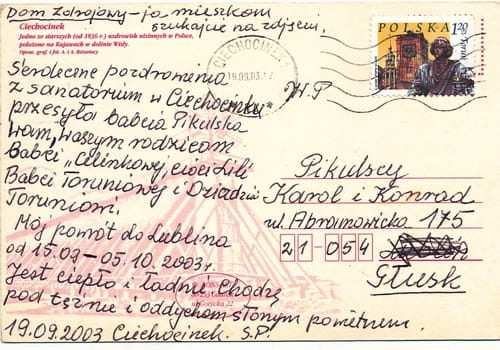 Dom Zdrojowy - ja mieszkam
szukajcie na zdjęciu.
Ciechocinek
Jedno ze starszych (od 1836 r.) uzdrowisk nizinnych w Polsce,
położone na Kujawach w dolinie Wisły.
Oprac. graf. i fot. A. i A. Różanscy
POLSKA 1,20
Toruń
CIECHOCINEK
19.09.03
Serdeczne pozdrowienia
z sanatorium w Ciechocinku
przesyła babcia Pikulska
Wam, waszym rodzicom
Babci "Celinkowej, cioci Lili
Babci Toruniowej i Dziadzi
Toruniowi.
Mój powrót do Lublina
od 15.09 - 05.10.2003 r.
Jest ciepło i ładnie. Chodzę
pod tężnie i oddycham słonym powietrzem.
19.09.2003 Ciechocinek. S.P.
W.P.
Pikulscy
Karol i Konrad
ul. Abramowicka 175
21-054
Głusk